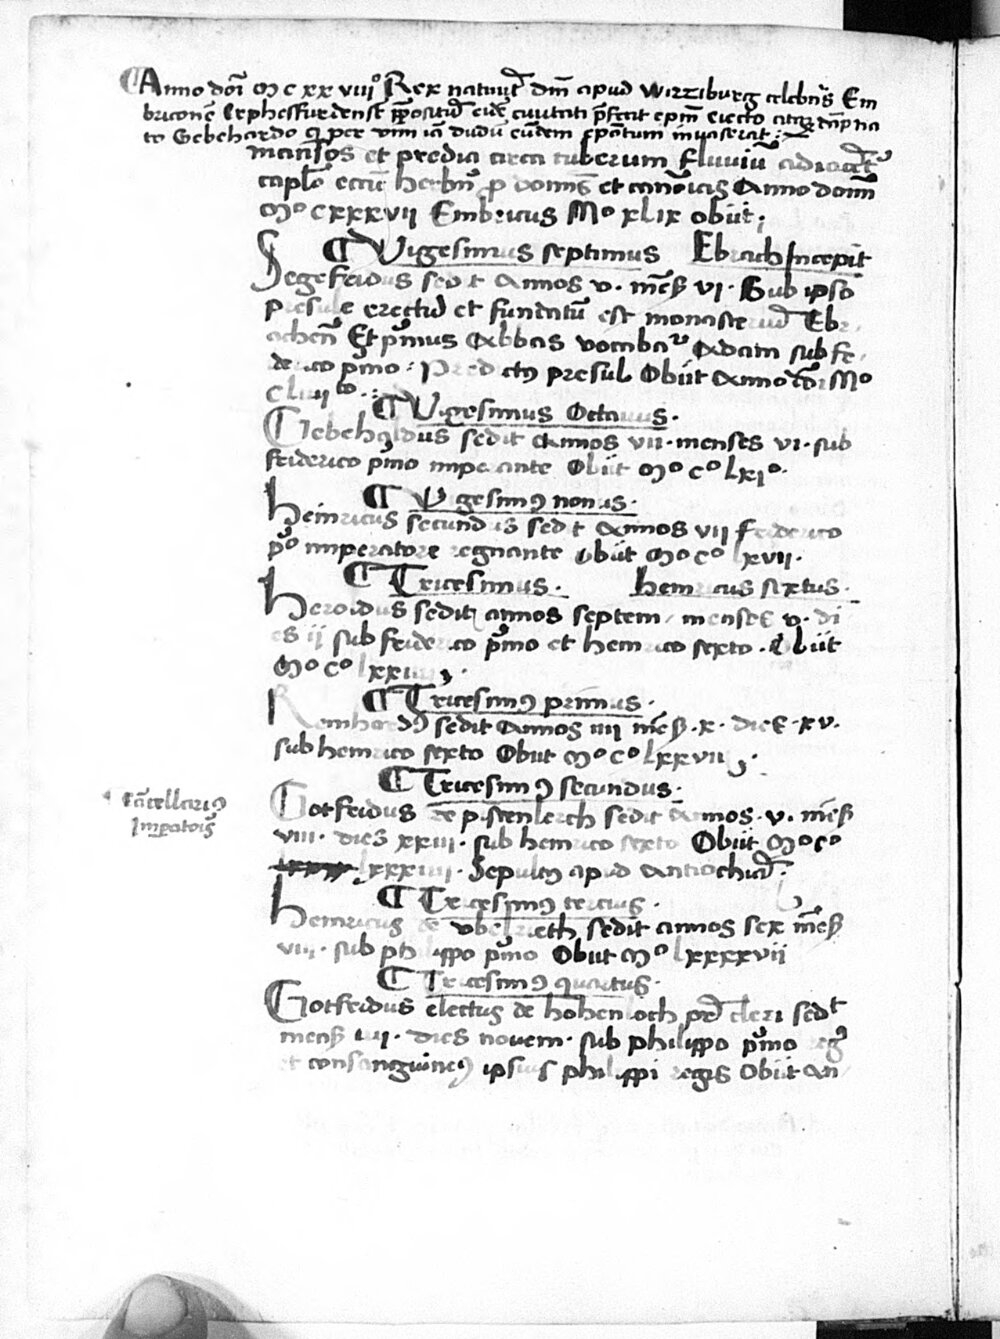 Anno dõi M c xx viiiº Rex natiuit͛ dm̃ apud Wirtziburg celebrãs Em
briconẽ Erphesfurdensẽ p̃positũ eidẽ ciuitati p̃fecit ep̃m eiecto atqꝫ dãpna
to Gebehardo qͥ per vim iã dudũ eũdem ep̃atum inuaserat :
mansos et predia circa tuberum fluuiũ adiacẽt͛
capl̃o eccl̃e herbñ ꝓ domĩs et canoĩcis Anno domĩ
Mº CXXXVII Embricus Mº xlix obiit ;
¶ Vigesimus septimus Ebrach Incepit
Segefridus sedit Annos v. mẽß vi. Sub ipso
presule erectũ et fundatũ est monasteriũ Ebr
achenß Et p̃mus Abbas vocabat͛ Adam sub fe
derico p̃mo : Predictꝰ presul Obiit Anno dõi Mº
¶ Vigesimus Octauus .
Gebeholdus sedit Annos vii . menses vi . sub
friderico p̃mo imperante Obiit Mº cº lxiº .
¶ Vigesimꝰ nonus .
heinricus secundus sedit Annos vii frederico
p̃º imperatore regnante obiit Mº cº lxvii .
¶ Tricesimus . heinricus sextus .
heroldus sedit annos septem menses v . di
es ii sub friderico p̃mo et heinrico sexto . Obiit
Mº cº lxxiiii .
¶ Tricesimꝰ primus .
Reinhardꝰ sedit Annos iiii mẽß . x . dies . xv .
sub heinrico sexto Obiit Mº cº lxxvii .
¶ Tricesimꝰ secundus .
Cãcellariꝰ
Imp̃atoris
Gotfridus de pistenlerch sedit Annos . v . mẽß
viii . dies xxiii . sub heinrico sexto Obiit Mº cº
lxxxiiii . Sepultꝰ apud Antiochiã .
¶ Tricesimꝰ tercius .
heinricus de vbelrieth sedit annos sex mẽß
viii . sub philippo p̃mo Obiit Mº lxxxxvii
¶ Tricesimꝰ quartus .
Gotfridus electus de hohenloch sedit
menß iiii . dies novem . sub philippo p̃mo reg̃
et consanguineꝰ ipsius philippi regis Obiit An